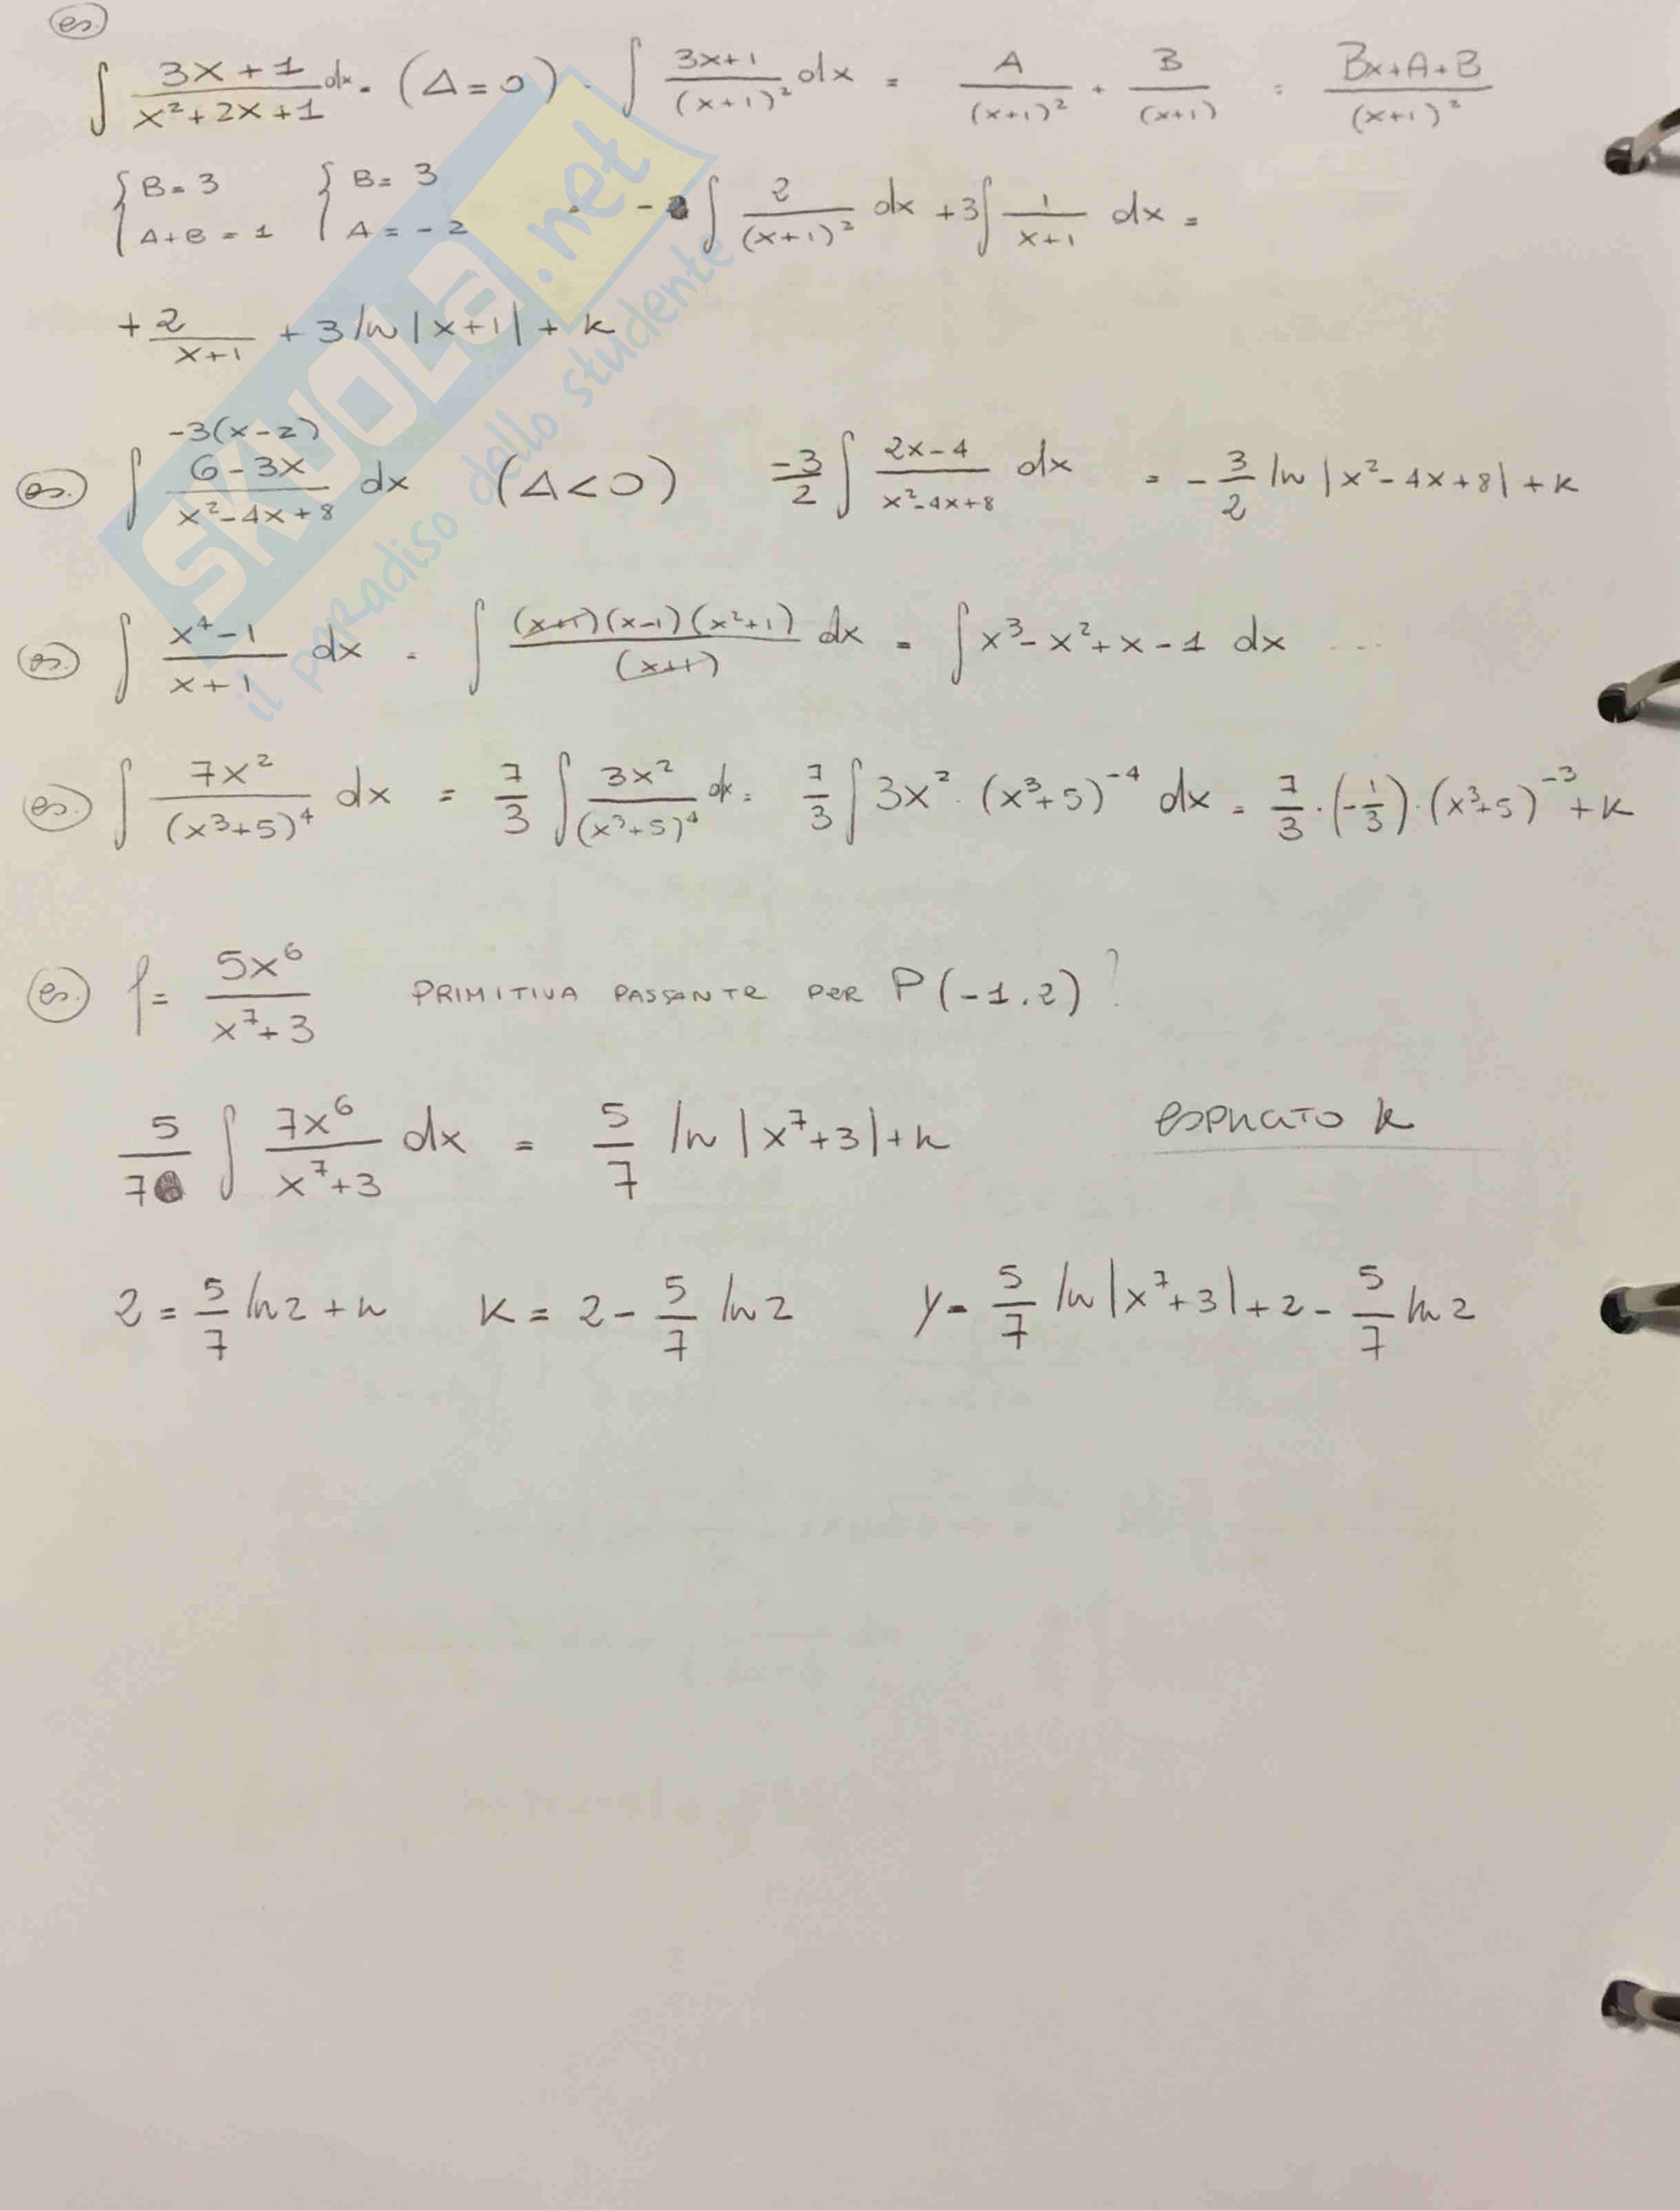 es.
∫ (3x+1)/(x²+2x+1) dx = (Δ=0) = ∫ (3x+1)/(x+1)² dx = A/(x+1)² + B/(x+1) = (Bx+A+B)/(x+1)²
{B=3 A+B=1 {B=3 A=-2 = -∫ 2/(x+1)² dx +3∫ 1/(x+1) dx =
+2/(x+1) + 3 ln|x+1| + k
-3(x-2)
es. ∫ (6-3x)/(x²-4x+8) dx (Δ<0) -3/2 ∫ (2x-4)/(x²-4x+8) dx = -3/2 ln|x²-4x+8| + k
es. ∫ (x⁴-1)/(x+1) dx = ∫ (x+1)(x-1)(x²+1)/(x+1) dx = ∫ x³-x²+x-1 dx ...
es. ∫ 7x²/(x³+5)⁴ dx = 7/3 ∫ 3x²/(x³+5)⁴ dx = 7/3 ∫ 3x² · (x³+5)⁻⁴ dx = 7/3 · (-1/3) · (x³+5)⁻³ + k
es. f = 5x⁶/(x⁷+3) PRIMITIVA PASSANTE PER P(-1,2)?
5/7 ∫ 7x⁶/(x⁷+3) dx = 5/7 ln|x⁷+3|+k
k
2 = 5/7 ln2 + k k = 2 - 5/7 ln2 y = 5/7 ln|x⁷+3|+2 - 5/7 ln2
SKUOLA.net
il paradiso dello studente